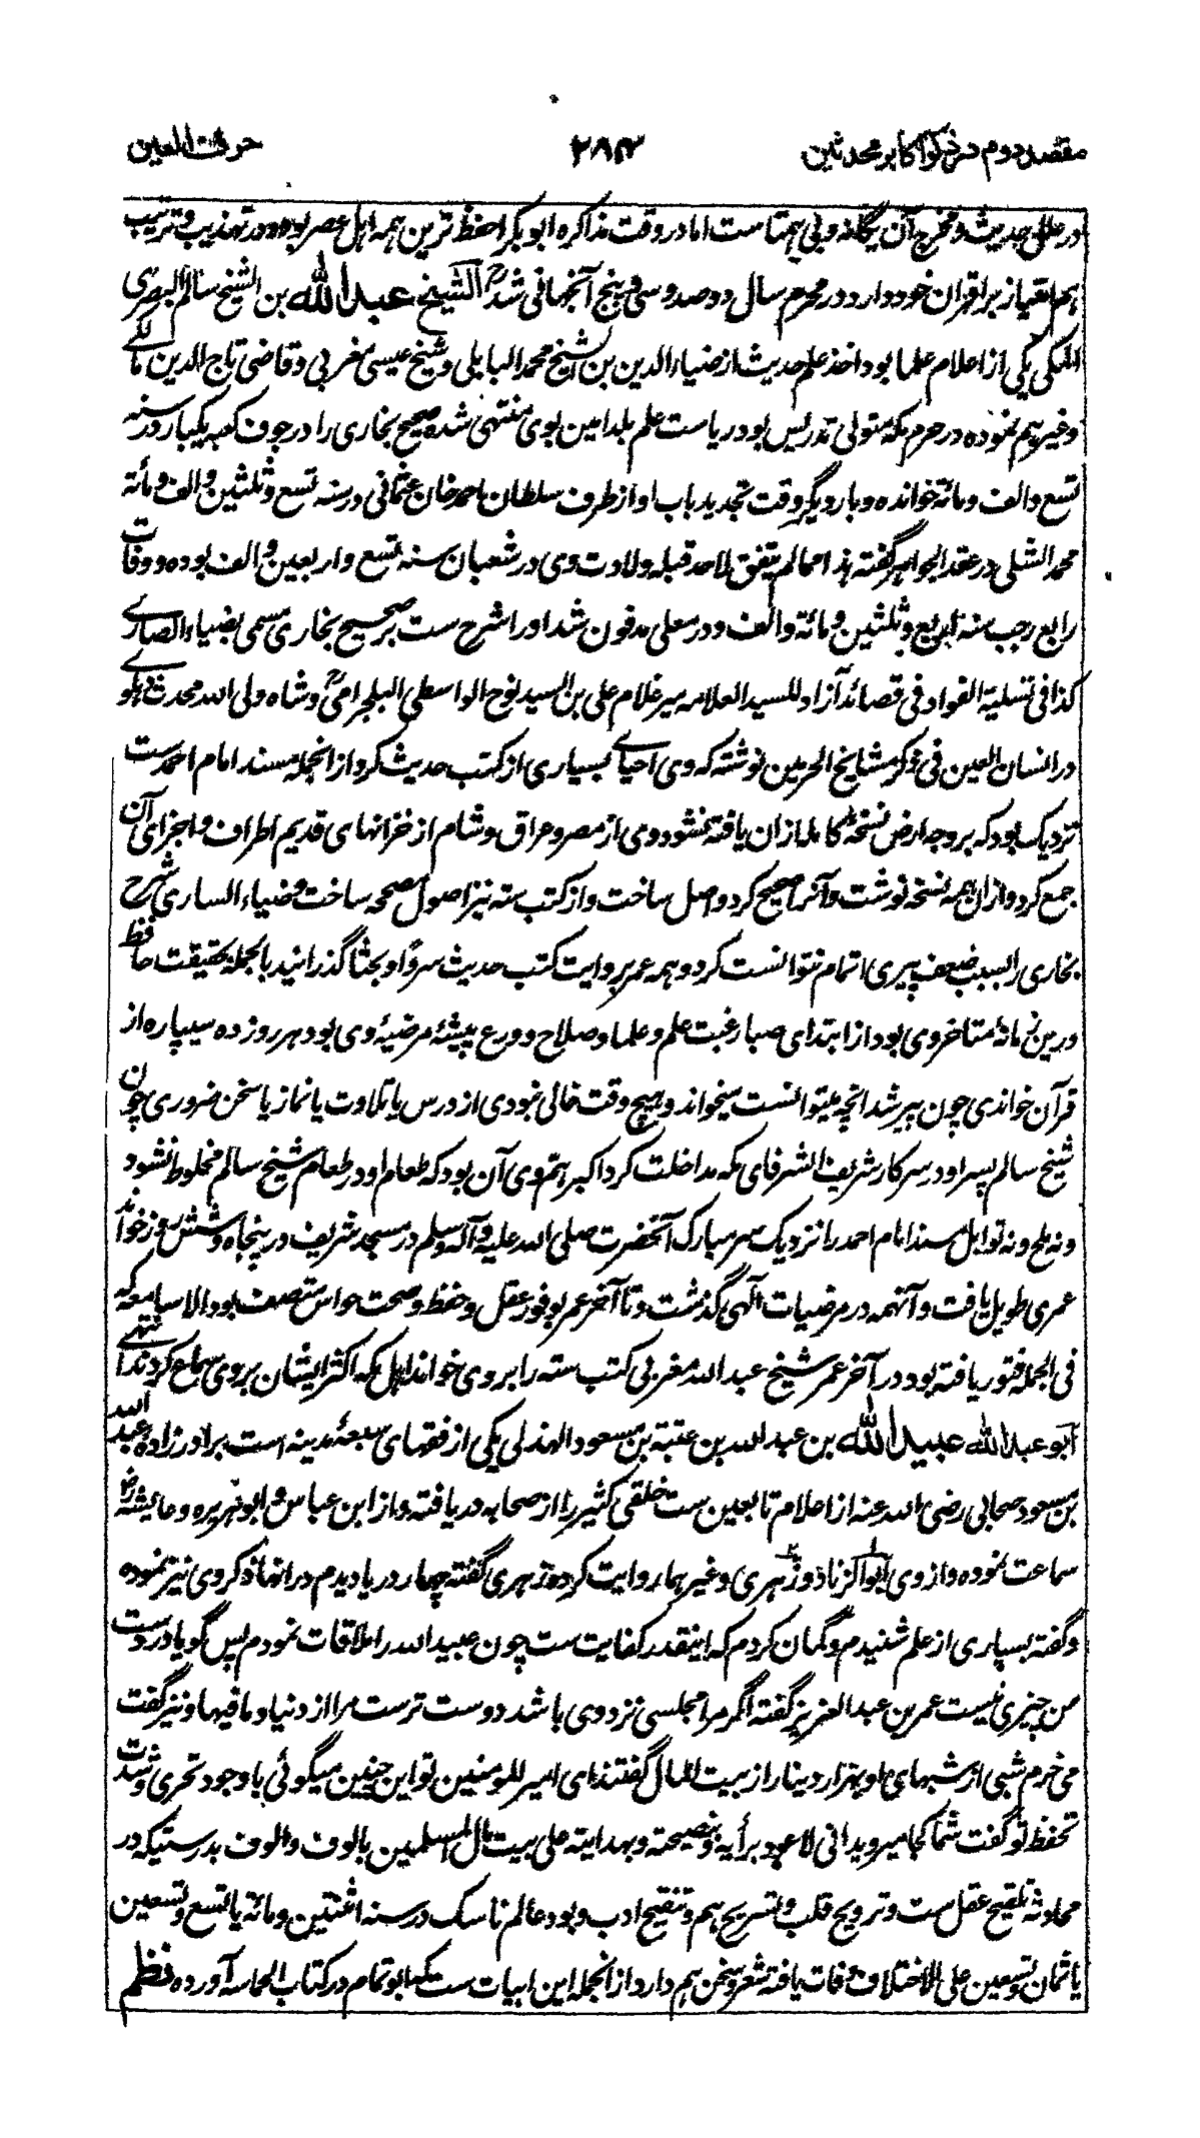 مقصد دوم در ذکر اکابر محدثین
۲۸۳
حرف العین
در علل حدیث و مخرج آن یگانه و بی همتاست اما در وقت مذاکره ابوبکر احفظ ترین همه اهل عصر بوده و در تهذیب و ترتیب
هم امتیاز بر اقران خود دارد در محرم سال دو صد و سی و پنج آنجهانی شد رح الشیخ عبد الله بن الشیخ سالم البصری
المکی یکی از اعلام علما بود اخذ علم حدیث از ضیاء الدین بن الشیخ محمد البابلی و شیخ عیسی مغربی و قاضی تاج الدین مالکے
وغیرهم نموده در حرم مکه متولی تدریس بود ریاست علم بلد امین بوی منتهی شده صحیح بخاری را در جوف کعبه یکبار در سنه
تسع والف ومائة خوانده و بار دیگر وقت تجدید باب او از طرف سلطان احمد خان عثمانی در سنه تسع وثلثین والف ومائة
محمد الشلی در عقد الجواهر گفته هذا مما لم یتفق لاحد قبله ولادت وی در شعبان سنه تسع واربعین والف بوده و وفات
رابع رجب سنه اربع وثلثین ومائة والف و در معلی مدفون شد او را شرح ست بر صحیح بخاری مسمی بضیاء الساری
کذا فی تسلیة الفواد فی قصائد آزاد للسید العلامه میر غلام علی بن السید نوح الواسطی البلجرامی رح و شاه ولی الله محدث دهلوے
در انسان العین فی ذکر مشایخ الحرمین نوشته که وی احیاے بسیاری از کتب حدیث کرد از انجمله مسند امام احمدست
نزدیک بود که بر وجه ارض نسخهٔ کامله ازان یافته نشود وی از مصر و عراق و شام از خزانهای قدیم اطراف و اجزای آن
جمع کرد و ازان همه نسخه نوشت و آنرا صحیح کرد و اصل ساخت و از کتب سته نیز اصول مصححه ساخت و ضیاء الساری شرح
بخاری را بسبب ضعف پیری اتمام نتوانست کرد و همه عمر بروایت کتب حدیث سردًا و بحثًا گذرانید بالجمله بحقیقت حافظ
درین زمانهٔ متاخر وی بود از ابتدای صبا رغبت علم و علما و صلاح و ورع پیشهٔ مرضیهٔ وی بود هر روز ده سیپاره از
قرآن خواندی چون پیر شد آنچه میتوانست میخواند و هیچ وقت خالی نبودی از درس یا تلاوت یا نماز یا سخن ضروری چون
شیخ سالم پسر او در سرکار شریف الشرفای مکه مداخلت کرد اکبر هم وی آن بود که طعام او در طعام شیخ سالم مخلوط نشود
و نه ملح و نه توابل مسند امام احمد را نزدیک سر مبارک آنحضرت صلی الله علیه و آله وسلم در مسجد شریف در پنجاه و شش روز خواند
عمری طویل یافت و آنهمه در مرضیات الهی گذشت و تا آخر عمر بوفور عقل و حفظ و صحت حواس متصف بود الا سامعه که
فی الجمله فتور یافته بود در آخر عمر شیخ عبد الله مغربی کتب سته را بر وی خواند اهل مکه اکثر ایشان بر وی سماع کردند انتهے
ابو عبد الله عبید الله بن عبد الله بن عتبة بن مسعود الهذلی یکی از فقهای سبعهٔ مدینه است برادر زاده عبد الله
بن مسعود صحابی رضی الله عنه از اعلام تابعین ست خلقی کثیر را از صحابه دریافته و از ابن عباس و ابو هریره و عایشه رض
سماعت نموده و از وی ابو الزناد و زهری وغیرهما روایت کرده زهری گفته چهار دریا دیدم در آنها ذکر وی نیز نموده
و گفته بسیاری از علم شنیدم و گمان کردم که اینقدر کفایت ست چون عبید الله را ملاقات نمودم پس گویا در دست
من چیزی نیست عمر بن عبد العزیز گفته اگر مرا مجلسی نزد وی باشد دوست ترست مرا از دنیا و ما فیها و نیز گفت
می خرم شبی از شبهای او بهزار دینار از بیت المال گفتند ای امیر المومنین تو این چنین میگوئی با وجود تحری و شدت
تحفظ تو گفت شما کجا میروید انی لاعود برأیه ونصیحته وبهدایته علی بیت مال المسلمین بالوف والوف بدرستیکه در
محادثه تلقیح عقل ست و ترویح قلب و تسریح هم و تنقیح ادب و بود عالم ناسک در سنه اثنتین ومائة یا تسع وتسعین
یا ثمان وتسعین علی الاختلاف وفات یافته شعر و سخن هم دارد از انجمله این ابیات ست که ابو تمام در کتاب الحماسه آورده نظم